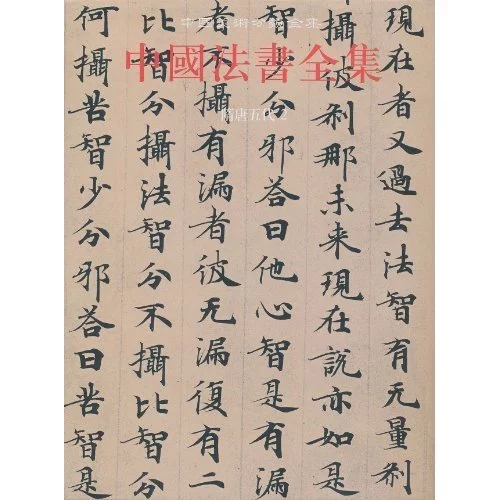 中国美術分類全集
中國法書全集
隋唐五代 2
現在者又過去法智有无量刹
攝彼刹那未来現在説亦如是
智少分邪荅曰他心智是有漏
者不攝有漏者彼无漏復有二
比智分攝法智分不攝比智分
何攝苦智少分邪荅曰苦智是